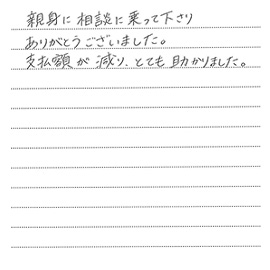 親身に相談に乗って下さり
ありがとうございました。
支払額が減り、とても助かりました。